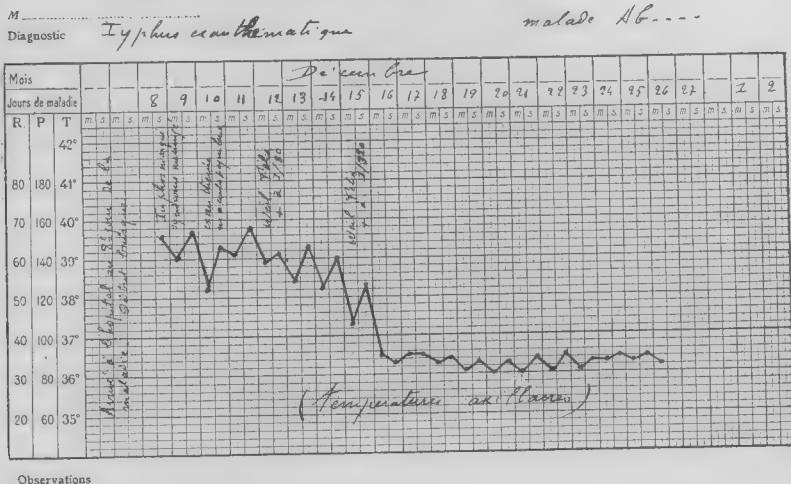 M
malade Ab....
Diagnostic Typhus exanthématique
Mois Décembre
Jours de maladie 8 9 10 11 12 13 14 15 16 17 18 19 20 21 22 23 24 25 26 27 1 2
m s m s m s m s m s m s m s m s m s m s m s m s m s m s m s m s m s m s m s m s m s m s m s m s
R. P T
42°
80 180 41°
70 160 40°
60 140 39°
50 120 38°
40 100 37°
30 80 36°
20 60 35°
Arrivé à l'hôpital au 8e jour de la
maladie
exanthème
Weil Félix
+ à 1/80
Weil Félix
(températures axillaires)
Observations